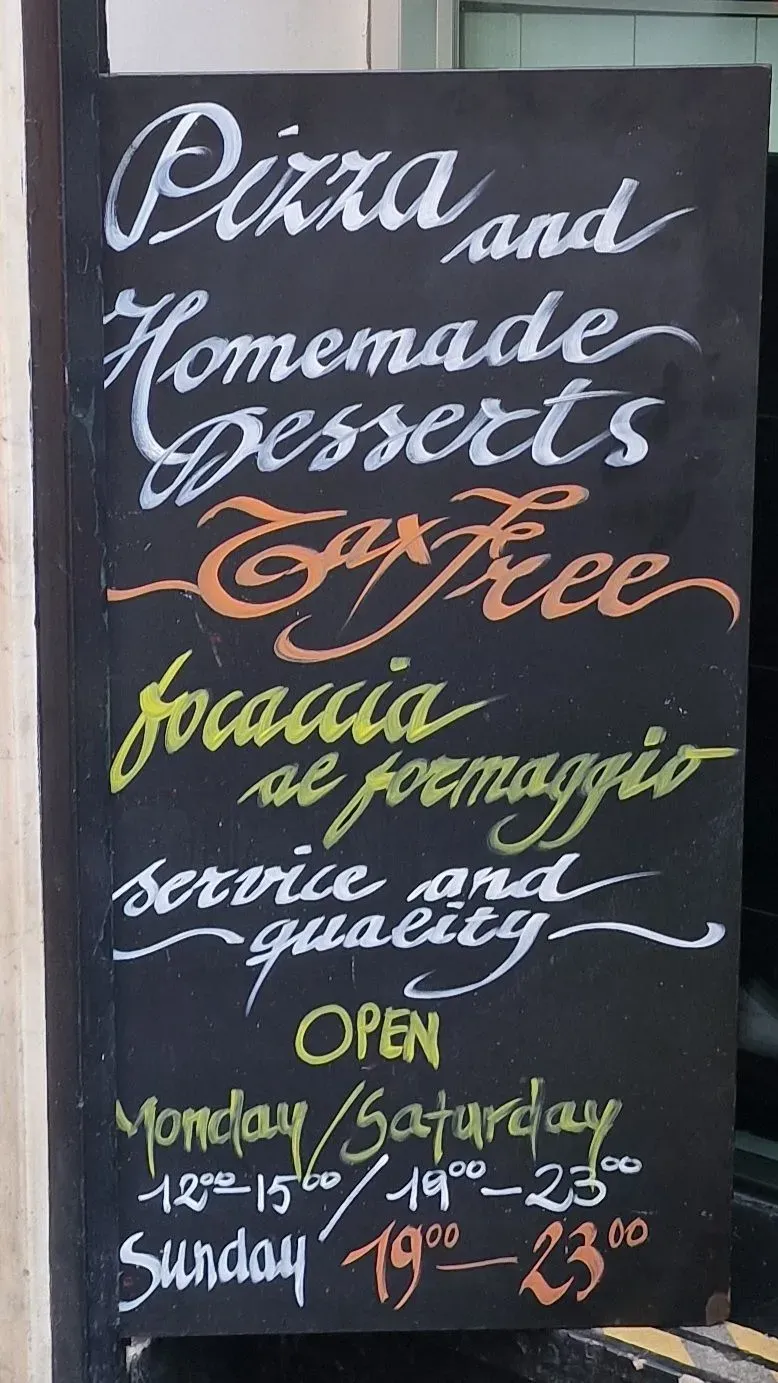 Pizza and
Homemade
Desserts
Tax Free
focaccia
al formaggio
service and
quality
OPEN
Monday/Saturday
12⁰⁰-15⁰⁰/19⁰⁰-23⁰⁰
Sunday 19⁰⁰-23⁰⁰